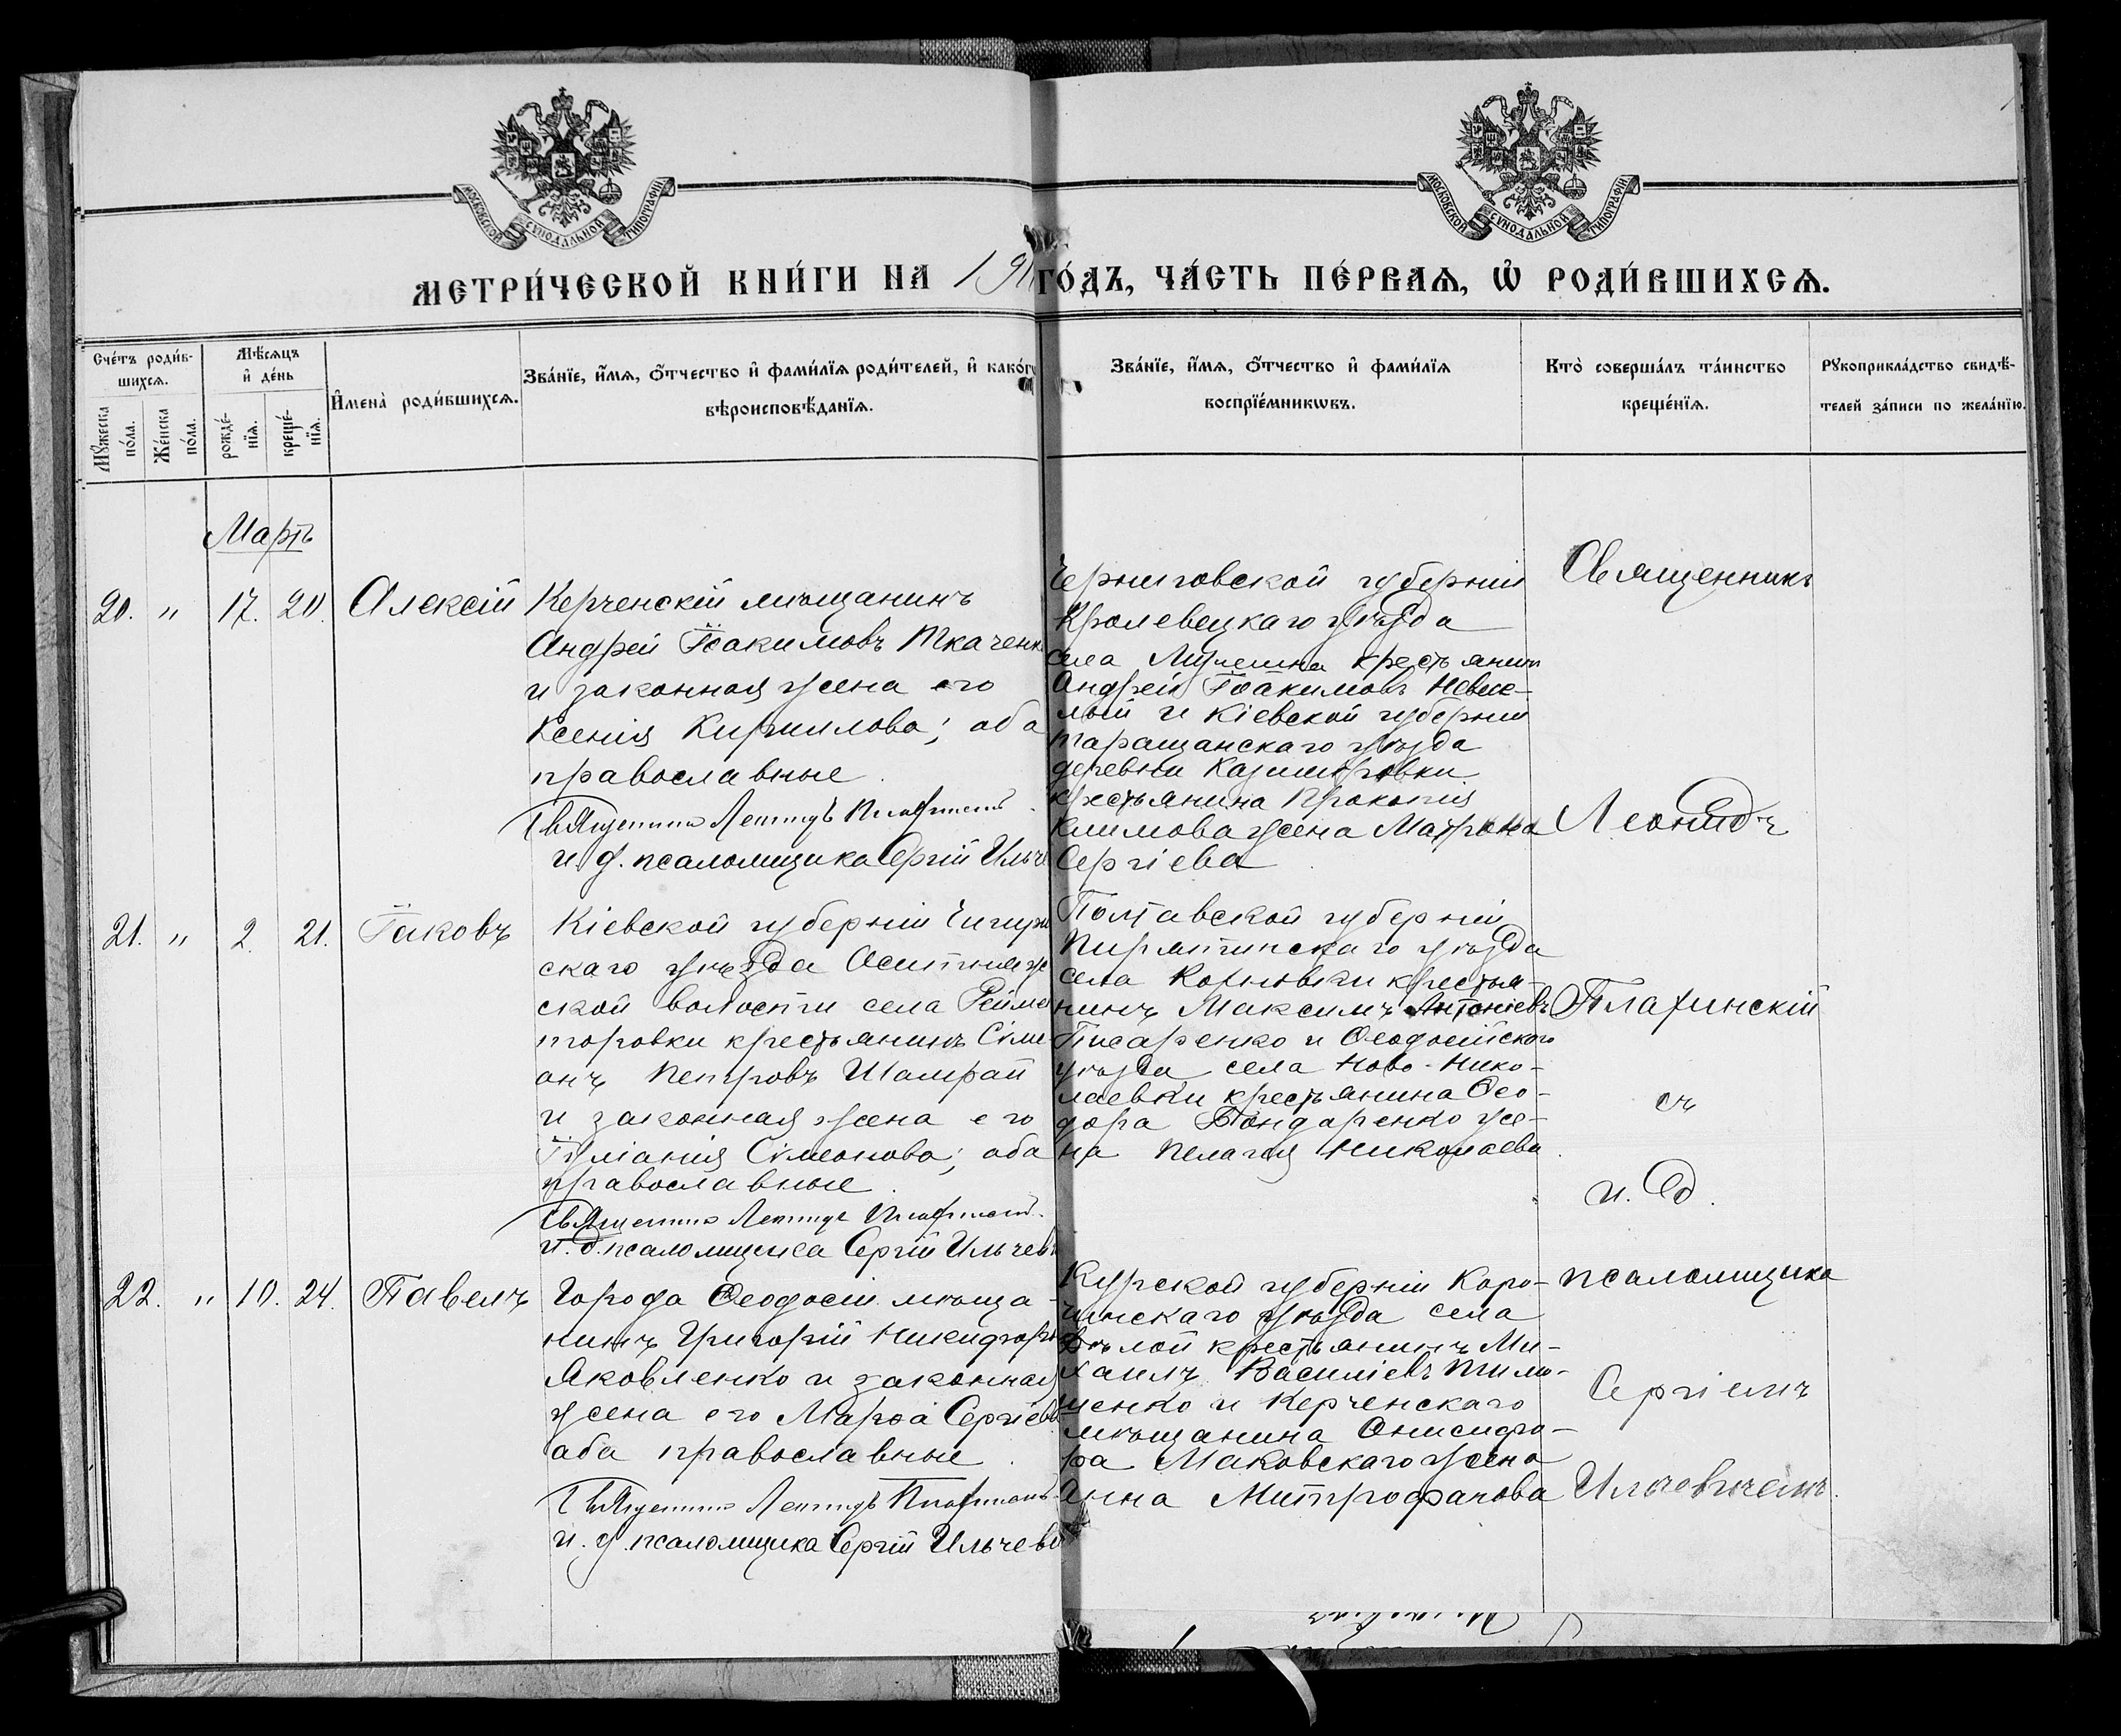 МОСКОВСКОЙ СѴНОДАЛЬНОЙ ТИПОГРАФІИ
МОСКОВСКОЙ СѴНОДАЛЬНОЙ ТИПОГРАФІИ
МЕТРИ́ЧЕСКОЙ КНИ́ГИ НА 191 ГО́ДЪ, ЧА́СТЬ ПЕ́РВАѦ, Ѡ҆ РОДИ́ВШИХСѦ.
Сче́тъ роди́в-
шихсѧ.
Мꙋ́жеска по́ла.
Же́нска по́ла.
Мѣ́сѧцъ
и҆ де́нь
рожде́-
нїѧ.
креще́-
нїѧ.
И҆мена̀ роди́вшихсѧ.
Зва́нїе, и҆́мѧ, ѻ҆́тчество и҆ фами́лїѧ роди́телей, и҆ како́гѡ
вѣроисповѣ́данїѧ.
Зва́нїе, и҆́мѧ, ѻ҆́тчество и҆ фами́лїѧ
воспрїе́мникѡвъ.
Кто̀ соверша́лъ та́инство
креще́нїѧ.
Рꙋкоприкла́дство свидѣ́-
телей за́писи по жела́нїю.
Мартъ
20. " 17. 20. Алексій
Керченскій мѣщанинъ
Андрей Іоакимовъ Ткаченк
и законная жена его
Ксенія Кириллова; оба
православные.
Священникъ Леонидъ Плафинскій
и д. псаломщика Сергій Ильче
Черниговской губерніи
Кролевецкаго уѣзда
села крестьянинъ
Андрей Іоакимовъ Невесе-
лый и Кіевской губерніи
Таращанскаго уѣзда
деревни Казимировки
крестьянина Прокопія
Климова жена Матрона
Сергіева.
21. " 2. 21. Іаковъ
Кіевской губерніи Чигирин
скаго уѣзда Оситняж
ской волости села Рейме
торовки крестьянинъ Симе
онъ Петровъ Шамрай
и законная жена его
Іуліанія Симеонова; оба
православные.
Священникъ Леонидъ Плафинскій
и. д. псаломщика Сергій Ильчев
Полтавской губерніи
Пирятинскаго уѣзда
села крестья-
нинъ Максимъ Антоніевъ
Писаренко и Ѳеодосійскаго
уѣзда села Ново-Нико-
лаевки крестьянина Ѳео-
дора Бондаренко же-
на Пелагія Николаева.
22. " 10. 24. Павелъ
Города Ѳеодосіи мѣща-
нинъ Григорій Никифоро
Яковленко и законная
жена его Марѳа Сергіев
оба православные.
Священникъ Леонидъ Плафинскій
и. д. псаломщика Сергій Ильчев
Курской губерніи Коро-
чанскаго уѣзда села
Бѣлой крестьянинъ Ми-
хаилъ Василіевъ Тимо-
шенко и Керченскаго
мѣщанина Онисифо-
ра Маковскаго жена
Анна Митрофанова
Священникъ
Леонидъ
Плафинскій
съ
и. д.
псаломщика
Сергіемъ
Ильчевичемъ.